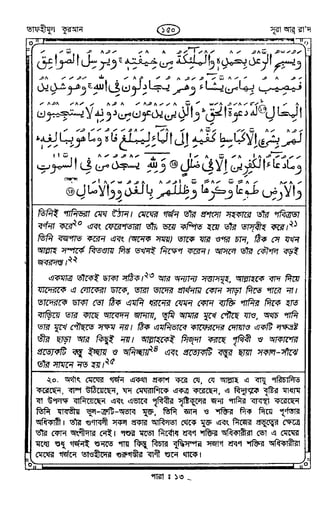 তাফহীমুল কুরআন
১৫০
সূরা আর্ রা'দ
وَيُسَبِّحُ الرَّعْدُ بِحَمْدِهِ وَالْمَلٰئِكَةُ مِنْ خِيفَتِهِ ۚ وَيُرْسِلُ الصَّوَاعِقَ
فَيُصِيبُ بِهَا مَنْ يَشَاءُ وَهُمْ يُجَادِلُونَ فِي اللهِ ۚ وَهُوَ شَدِيدُ
الْمِحَالِ ۝ لَهُ دَعْوَةُ الْحَقِّ ۖ وَالَّذِينَ يَدْعُونَ مِنْ دُونِهِ لَا يَسْتَجِيبُونَ
لَهُمْ بِشَيْءٍ إِلَّا كَبَاسِطِ كَفَّيْهِ إِلَى الْمَاءِ لِيَبْلُغَ فَاهُ وَمَا هُوَ بِبَالِغِهِ ۚ
وَمَا دُعَاءُ الْكٰفِرِينَ إِلَّا فِي ضَلٰلٍ ۝ وَلِلّٰهِ يَسْجُدُ مَنْ فِي السَّمٰوٰتِ
وَالْأَرْضِ طَوْعًا وَكَرْهًا وَظِلٰلُهُمْ بِالْغُدُوِّ وَالْآصَالِ ۝
তিনিই পানিভরা মেঘ উঠান। মেঘের গর্জন তাঁর প্রশংসা সহকারে তাঁর পবিত্রতা
বর্ণনা করে২০ এবং ফেরেশতারা তাঁর ভয়ে কম্পিত হয়ে তাঁর তাস্‌বীহ করে।২১
তিনি বজ্রপাত করেন এবং (অনেক সময়) তাকে যার ওপর চান, ঠিক সে যখন
আল্লাহ সম্পর্কে বিতণ্ডায় লিপ্ত তখনই নিক্ষেপ করেন। আসলে তাঁর কৌশল বড়ই
জবরদস্ত।২২
একমাত্র তাঁকেই ডাকা সঠিক।২৩ আর অন্যান্য সত্তাসমূহ, আল্লাহকে বাদ দিয়ে
যাদেরকে এ লোকেরা ডাকে, তারা তাদের প্রার্থনায় কোন সাড়া দিতে পারে না।
তাদেরকে ডাকা তো ঠিক এমনি ধরনের যেমন কোন ব্যক্তি পানির দিকে হাত
বাড়িয়ে তার কাছে আবেদন জানায়, তুমি আমার মুখে পৌঁছে যাও, অথচ পানি
তার মুখে পৌঁছতে সক্ষম নয়। ঠিক এমনিভাবে কাফেরদের দোয়াও একটি লক্ষভ্রষ্ট
তীর ছাড়া আর কিছুই নয়। আল্লাহকেই সিজ্‌দা করছে পৃথিবী ও আকাশের
প্রত্যেকটি বস্তু ইচ্ছায় ও অনিচ্ছায়২৪ এবং প্রত্যেকটি বস্তুর ছায়া সকাল-সাঁঝে
তাঁর সামনে নত হয়।২৫
২০. অর্থাৎ মেঘের গর্জন একথা প্রকাশ করে যে, যে আল্লাহ এ বায়ু পরিচালিত
করেছেন, বাষ্প উঠিয়েছেন, ঘন মেঘরাশিকে একত্র করেছেন, এ বিদ্যুতকে বৃষ্টির মাধ্যম
বা উপলক্ষ বানিয়েছেন এবং এভাবে পৃথিবীর সৃষ্টিকূলের জন্য পানির ব্যবস্থা করেছেন
তিনি যাবতীয় ভুল-ত্রুটি-অভাব মুক্ত, তিনি জ্ঞান ও শক্তির দিক দিয়ে পূর্ণতার
অধিকারী। তাঁর গুণাবলী সকল প্রকার আবিলতা থেকে মুক্ত এবং নিজের প্রভুত্বের ক্ষেত্রে
তাঁর কোন অংশীদার নেই। পশুর মতো নির্বোধ শ্রবণ শক্তির অধিকারীরা তো এ মেঘের
মধ্যে শুধু গর্জনই শুনতে পায় কিন্তু বিচার বুদ্ধিসম্পন্ন সজাগ শ্রবণ শক্তির অধিকারীরা
মেঘের গর্জনে তাওহীদের গুরুগম্ভীর বাণী শুনে থাকে।
পারা : ১৩